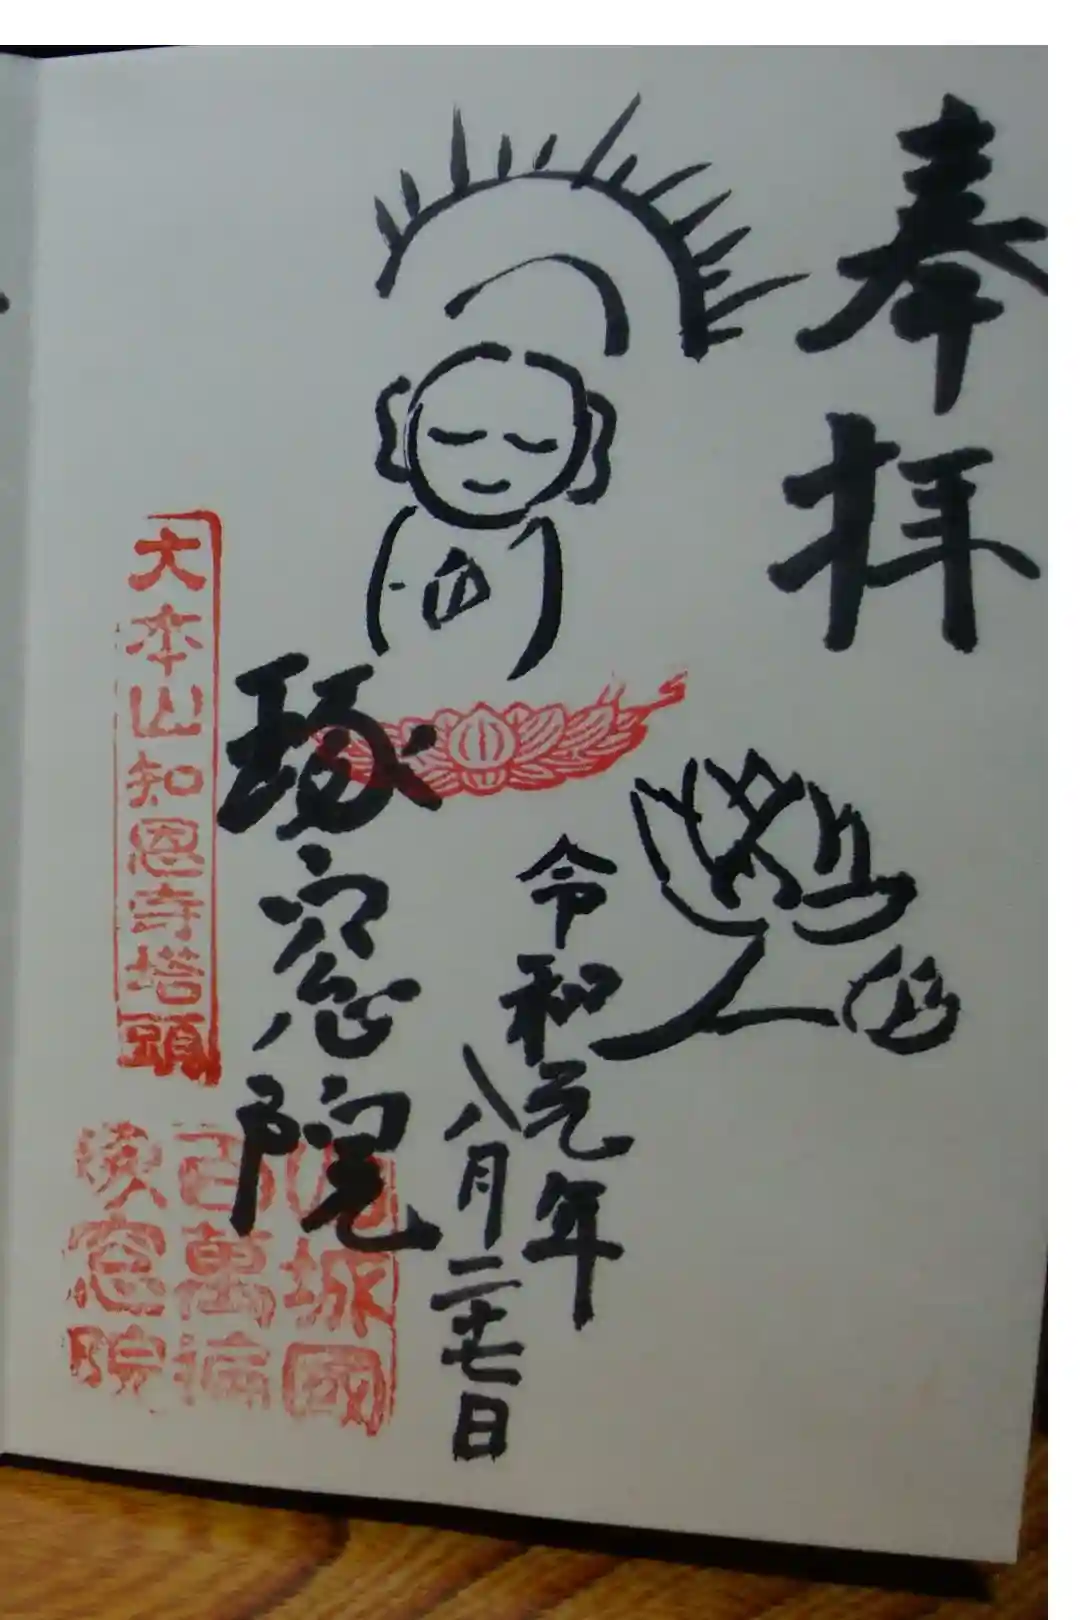 奉拝
令和元年
八月二十七日
琢窓院
大本山知恩寺塔頭
山城國
百萬遍
琢窓院